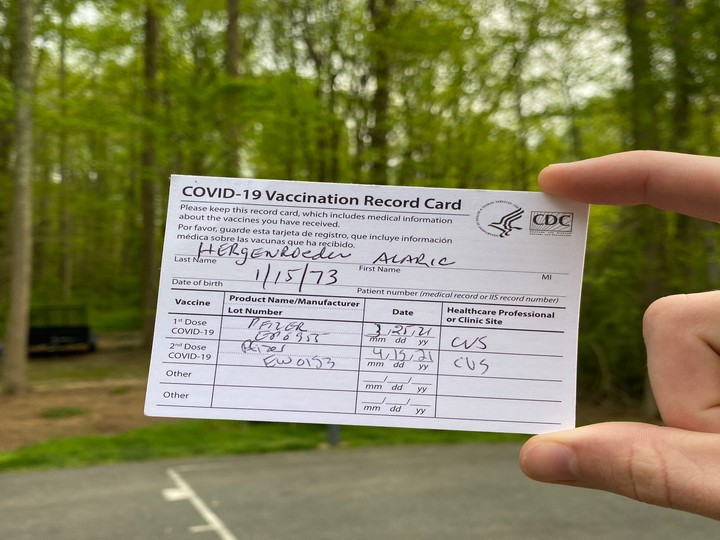 COVID-19 Vaccination Record Card
Please keep this record card, which includes medical information
about the vaccines you have received.
Por favor, guarde esta tarjeta de registro, que incluye información
médica sobre las vacunas que ha recibido.
CDC
HERgenRoeder ALARIC
Last Name First Name MI
1/15/73
Date of birth Patient number (medical record or IIS record number)
Vaccine Product Name/Manufacturer Date Healthcare Professional
Lot Number or Clinic Site
1st Dose PFIZER 3/25/21 CVS
COVID-19 mm dd yy
2nd Dose Pfizer 4/15/21 CVS
COVID-19 EW0153 mm dd yy
Other
mm dd yy
Other
mm dd yy